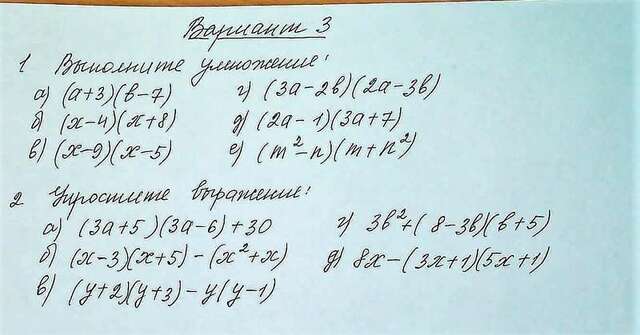 Вариант 3
1 Выполните умножение:
а) (a+3)(b-7) г) (3a-2b)(2a-3b)
б) (x-4)(x+8) д) (2a-1)(3a+7)
в) (x-9)(x-5) е) (m²-n)(m+n²)
2 Упростите выражение:
а) (3a+5)(3a-6)+30 г) 3b²+(8-3b)(b+5)
б) (x-3)(x+5)-(x²+x) д) 8x-(3x+1)(5x+1)
в) (y+2)(y+3)-y(y-1)